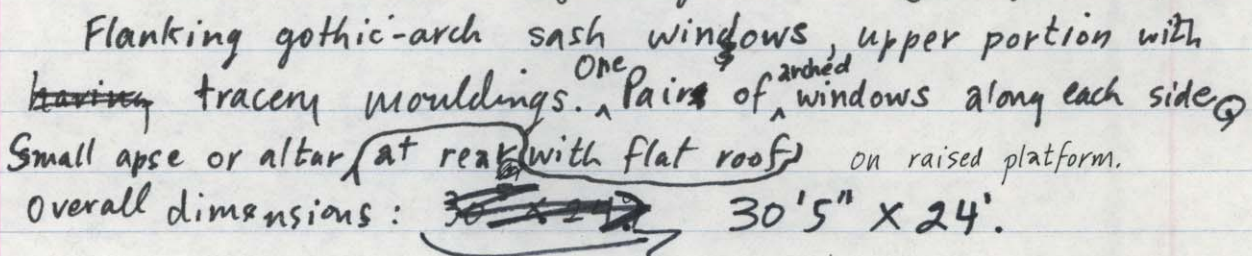 Flanking gothic-arch sash windows, upper portion with
having tracery mouldings. One Pair of arched windows along each side.
Small apse or altar at rear with flat roof on raised platform.
Overall dimensions: 30' x 24' 30'5" x 24'.